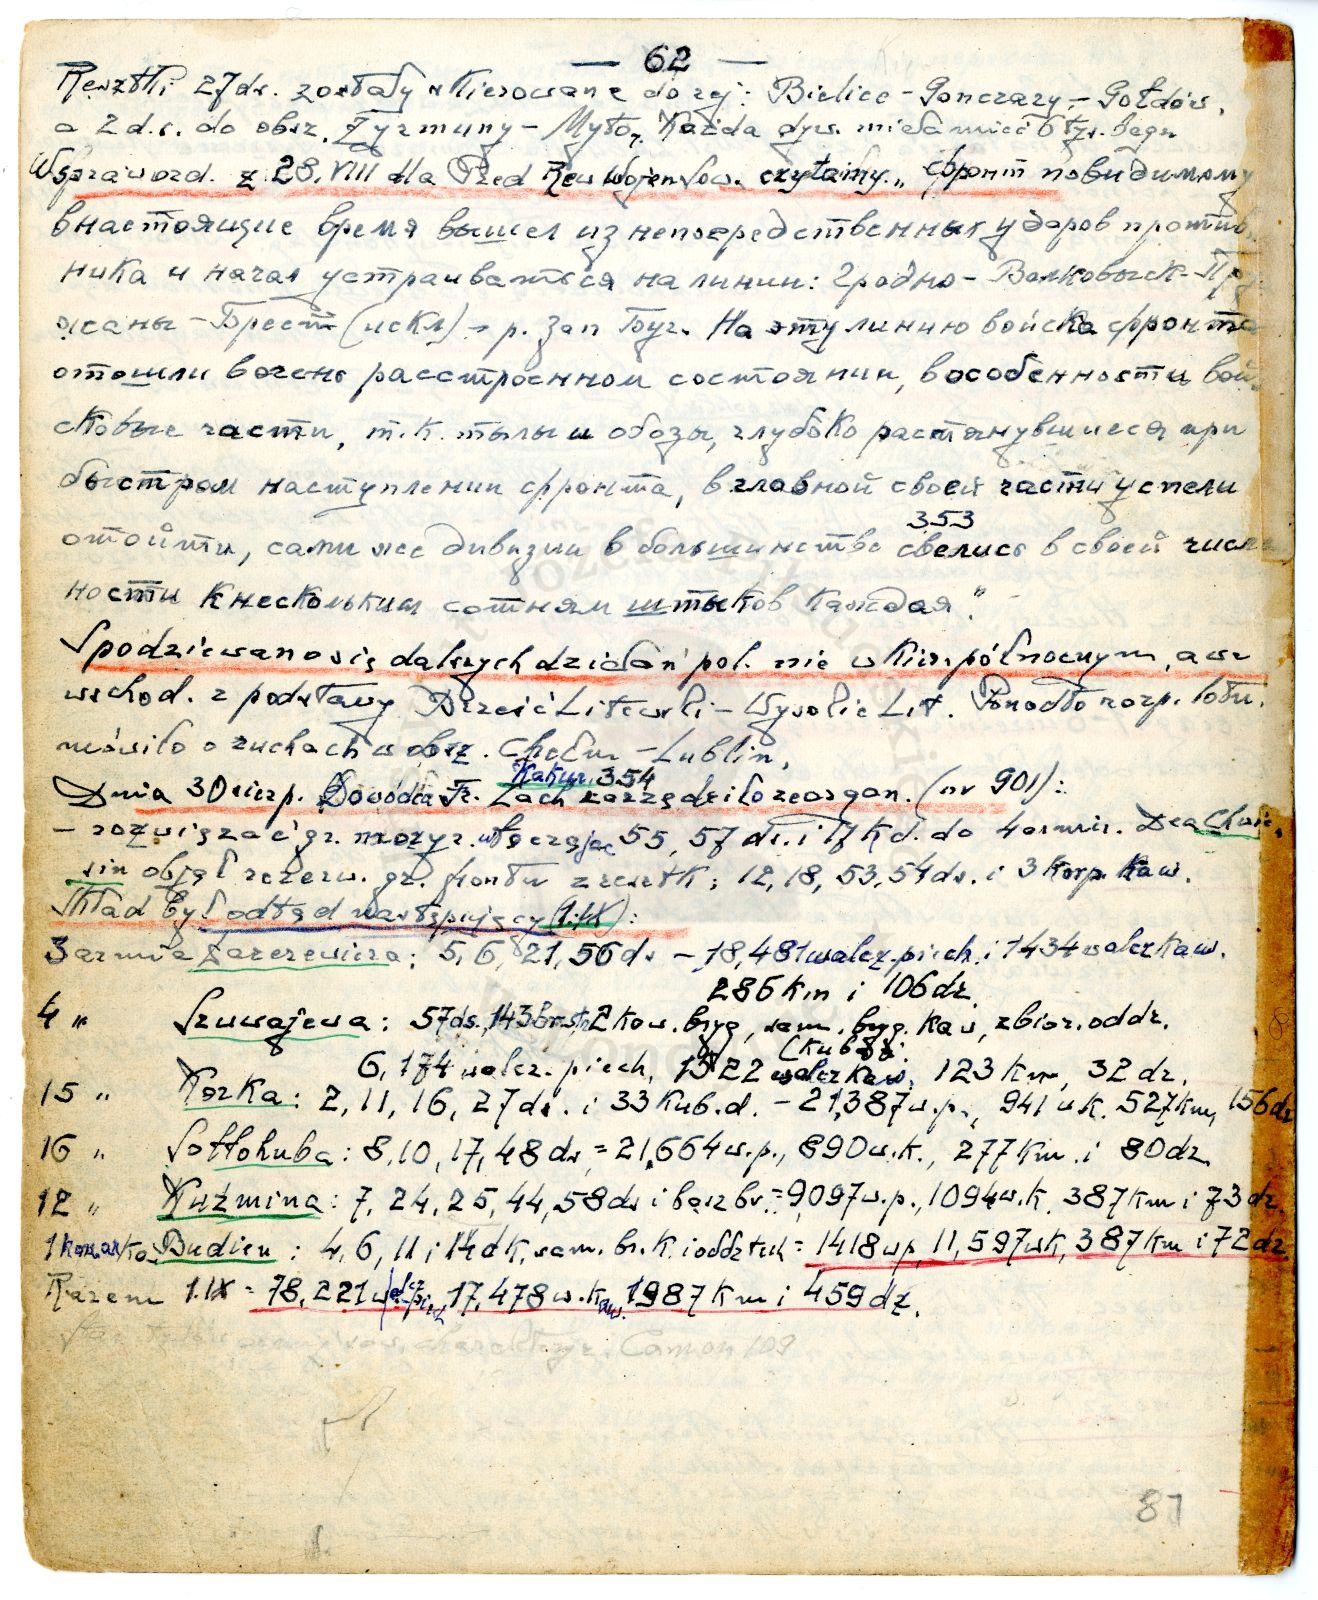 — 62 —
Resztki 27 ds. zostały skierowane do rej: Bielice - Gonczary - Gołdów,
a 2 d.s. do obsz. Żyrmuny - Myto. Każda dyw. miała mieć 6 tys. bagn
W sprawozd. z 28.VIII dla Przed Rew Wojen Sow. czytamy „Фронт повидимому
в настоящие время вышел из непосредственных ударов против
ника и начал устраиваться на линии: Гродно - Волковыск - Пру
жаны - Брест (искл) - р. Зап Буг. На эту линию войска фронта
отошли в очень расстроенном состоянии, в особенности вой
сковые части, т.к. тылы и обозы, глубоко растянувшиеся при
быстром наступлении фронта, в главной своей части успели
353
отойти, сами же дивизии в большинстве свелись в своей числе
ности к нескольким сотням штыков каждая".
Spodziewano się dalszych działań pol. nie w kier. północnym, a w
wschod. z podstawy Brześć Litewski - Wysokie Lit. Ponadto rozp. lotn.
mówiło o ruchach w obsz. Chełm - Lublin.
Kakur. 354
Dnia 30 sierp. Dowódca Fr. Zach zarządził reorgan. (nr 901):
- rozwiązać gr. mozyr. włączając 55, 57 ds. i 17 K.d. do 4 armii. Dca Chwie,
sin objął rezerw. gr. frontu z resztk: 12, 18, 53, 54 ds. i 3 korp. kaw.
Skład był odtąd następujący (1.IX):
3 armia Łazarewicza: 5, 6, 21, 56 ds - 18,481 walcz. piech. i 1434 walcz kaw.
286 km i 106 dz
4 " Szuwajewa: 57 ds., 143 br. str 2 kow. bryg, sam. bryg. kaw, zbior. oddz.
(kub d)
6,174 walcz. piech, 1522 walcz kaw, 123 km, 32 dz.
15 " Korka: 2, 11, 16, 27 ds. i 33 kub. d. - 21,387 w.p., 941 w.k. 527 km, 156 dz
16 " Sołłohuba: 8, 10, 17, 48 ds = 21,664 w.p., 890 w.k., 277 km. i 80 dz
12 " Kuźmina: 7, 24, 25, 44, 58 ds i baszbr. = 9097 w.p., 1094 w.k. 387 km i 73 dz.
1 kon. arka Budien: 4, 6, 11 i 14 dk, sam. br. k. i oddz tech = 1418 wp, 11,597 wk, 387 km i 72 dz.
Razem 1.IX = 78,221 walcz piech, 17,478 w. kaw. 1987 km i 459 dz.
charaktyr. Camon 109
87